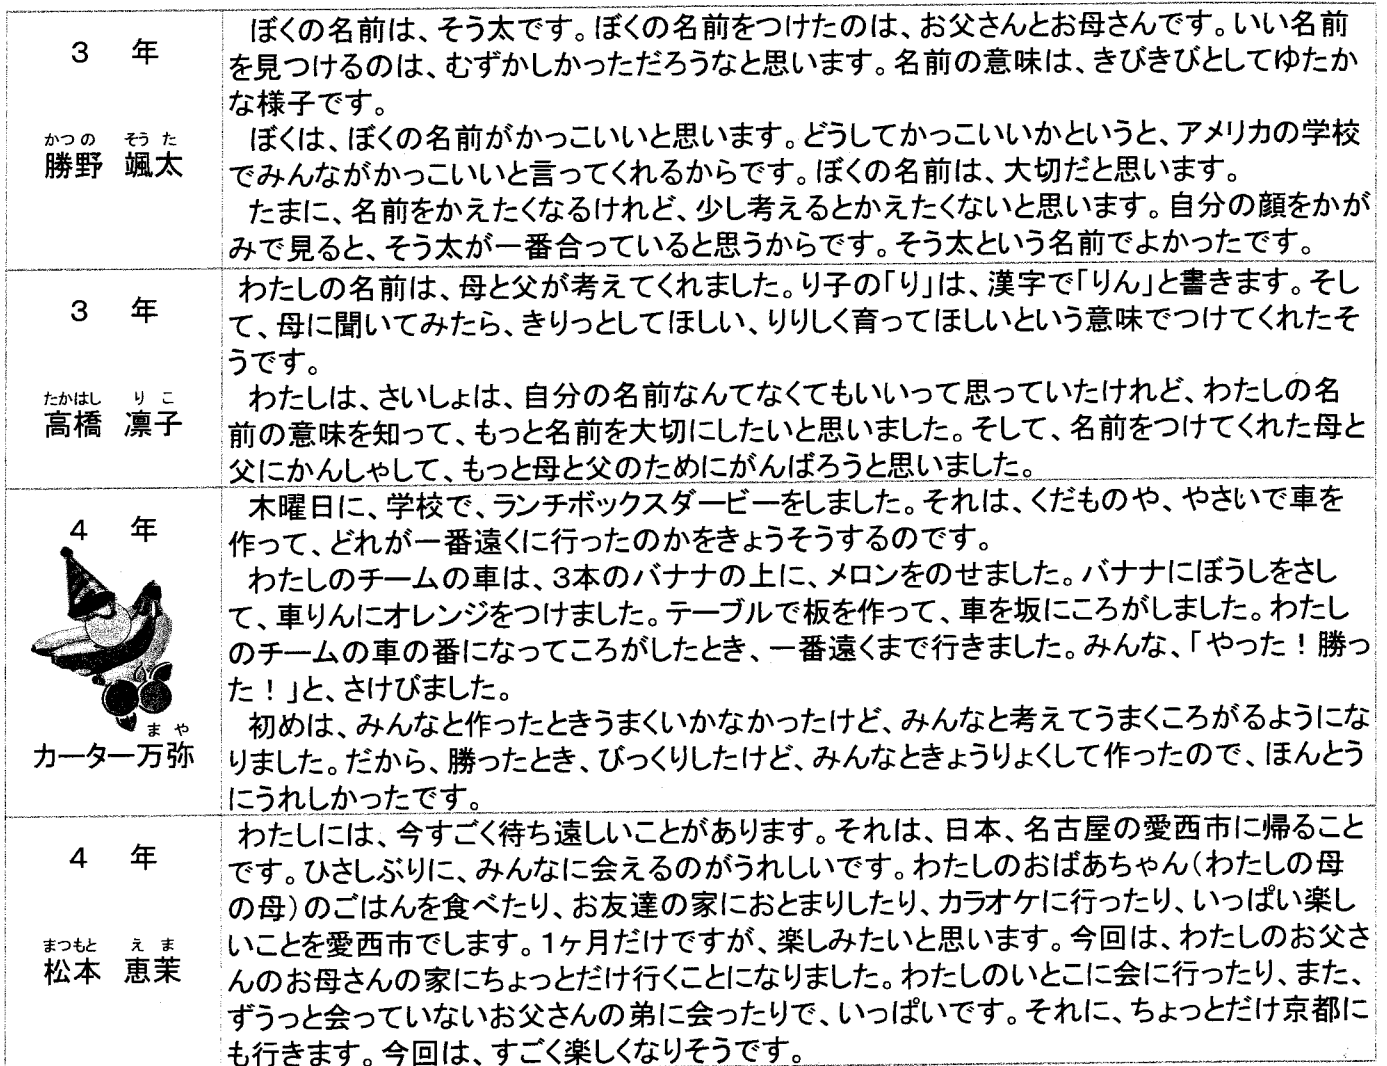 3 年
かつの そう た
勝野 颯太
ぼくの名前は、そう太です。ぼくの名前をつけたのは、お父さんとお母さんです。いい名前
を見つけるのは、むずかしかっただろうなと思います。名前の意味は、きびきびとしてゆたか
な様子です。
ぼくは、ぼくの名前がかっこいいと思います。どうしてかっこいいかというと、アメリカの学校
でみんながかっこいいと言ってくれるからです。ぼくの名前は、大切だと思います。
たまに、名前をかえたくなるけれど、少し考えるとかえたくないと思います。自分の顔をかが
みで見ると、そう太が一番合っていると思うからです。そう太という名前でよかったです。
3 年
たかはし り こ
高橋 凛子
わたしの名前は、母と父が考えてくれました。り子の「り」は、漢字で「りん」と書きます。そし
て、母に聞いてみたら、きりっとしてほしい、りりしく育ってほしいという意味でつけてくれたそ
うです。
わたしは、さいしょは、自分の名前なんてなくてもいいって思っていたけれど、わたしの名
前の意味を知って、もっと名前を大切にしたいと思いました。そして、名前をつけてくれた母と
父にかんしゃして、もっと母と父のためにがんばろうと思いました。
4 年
ま や
カーター万弥
木曜日に、学校で、ランチボックスダービーをしました。それは、くだものや、やさいで車を
作って、どれが一番遠くに行ったのかをきょうそうするのです。
わたしのチームの車は、3本のバナナの上に、メロンをのせました。バナナにぼうしをさし
て、車りんにオレンジをつけました。テーブルで板を作って、車を坂にころがしました。わたし
のチームの車の番になってころがしたとき、一番遠くまで行きました。みんな、「やった!勝っ
た!」と、さけびました。
初めは、みんなと作ったときうまくいかなかったけど、みんなと考えてうまくころがるようにな
りました。だから、勝ったとき、びっくりしたけど、みんなときょうりょくして作ったので、ほんとう
にうれしかったです。
4 年
まつもと え ま
松本 恵茉
わたしには、今すごく待ち遠しいことがあります。それは、日本、名古屋の愛西市に帰ること
です。ひさしぶりに、みんなに会えるのがうれしいです。わたしのおばあちゃん(わたしの母
の母)のごはんを食べたり、お友達の家におとまりしたり、カラオケに行ったり、いっぱい楽し
いことを愛西市でします。1ヶ月だけですが、楽しみたいと思います。今回は、わたしのお父さ
んのお母さんの家にちょっとだけ行くことになりました。わたしのいとこに会に行ったり、また、
ずうっと会っていないお父さんの弟に会ったりで、いっぱいです。それに、ちょっとだけ京都に
も行きます。今回は、すごく楽しくなりそうです。